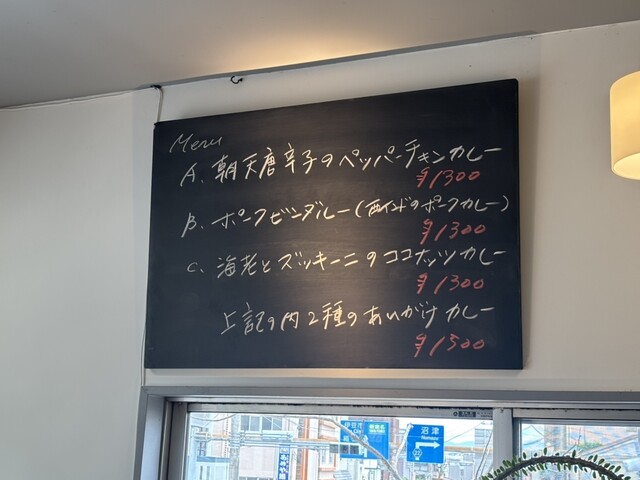 Menu
A. 朝天唐辛子のペッパーチキンカレー
¥1300
B. ポークビンダルー(西インドのポークカレー)
¥1300
C. 海老とズッキーニのココナッツカレー
¥1300
上記の内2種のあいがけカレー
¥1500
沼津
Numazu